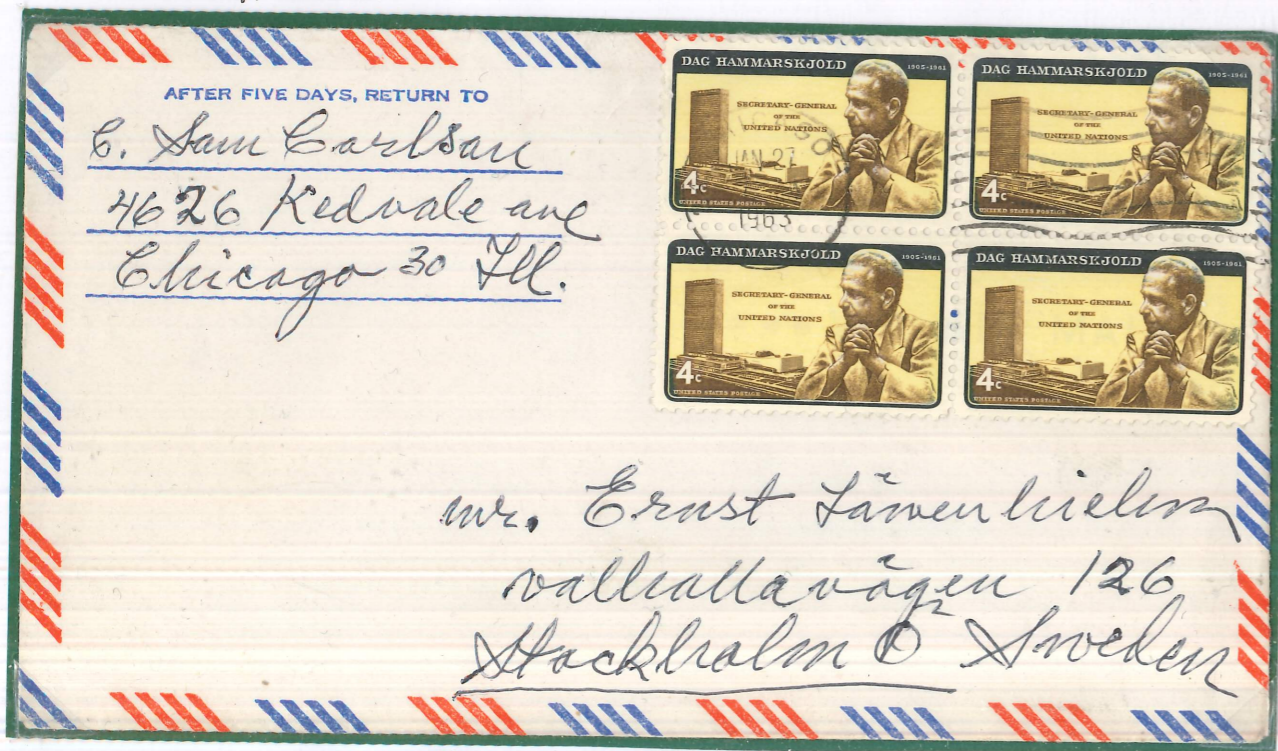 AFTER FIVE DAYS, RETURN TO
C. Sam Carlson
4626 Kedvale ave
Chicago 30 Ill.
DAG HAMMARSKJOLD 1905-1961
SECRETARY-GENERAL
OF THE
UNITED NATIONS
4c
UNITED STATES POSTAGE
DAG HAMMARSKJOLD 1905-1961
SECRETARY-GENERAL
OF THE
UNITED NATIONS
4c
UNITED STATES POSTAGE
JAN 27
1963
DAG HAMMARSKJOLD 1905-1961
SECRETARY-GENERAL
OF THE
UNITED NATIONS
4c
UNITED STATES POSTAGE
DAG HAMMARSKJOLD 1905-1961
SECRETARY-GENERAL
OF THE
UNITED NATIONS
4c
UNITED STATES POSTAGE
mr. Ernst Läwenhielm
valhallavägen 126
Stockholm Ö Sweden